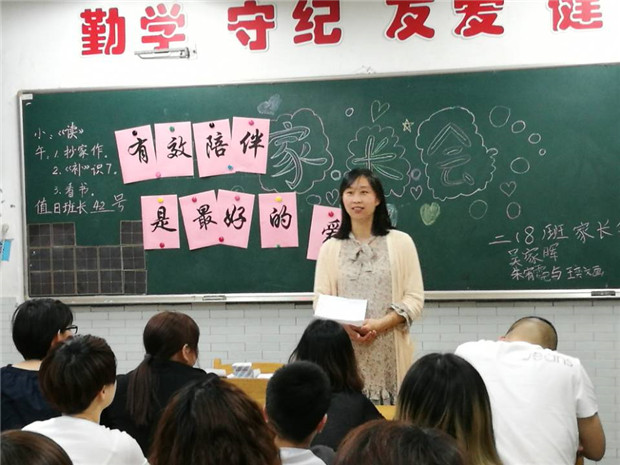 勤学 守纪 友爱 健
小：《读》
午：1.抄家作.
2.《补》识7.
3.看书.
值日班长 42 号
有效陪伴
是最好的爱
家长会
二(8)班家长
jeans